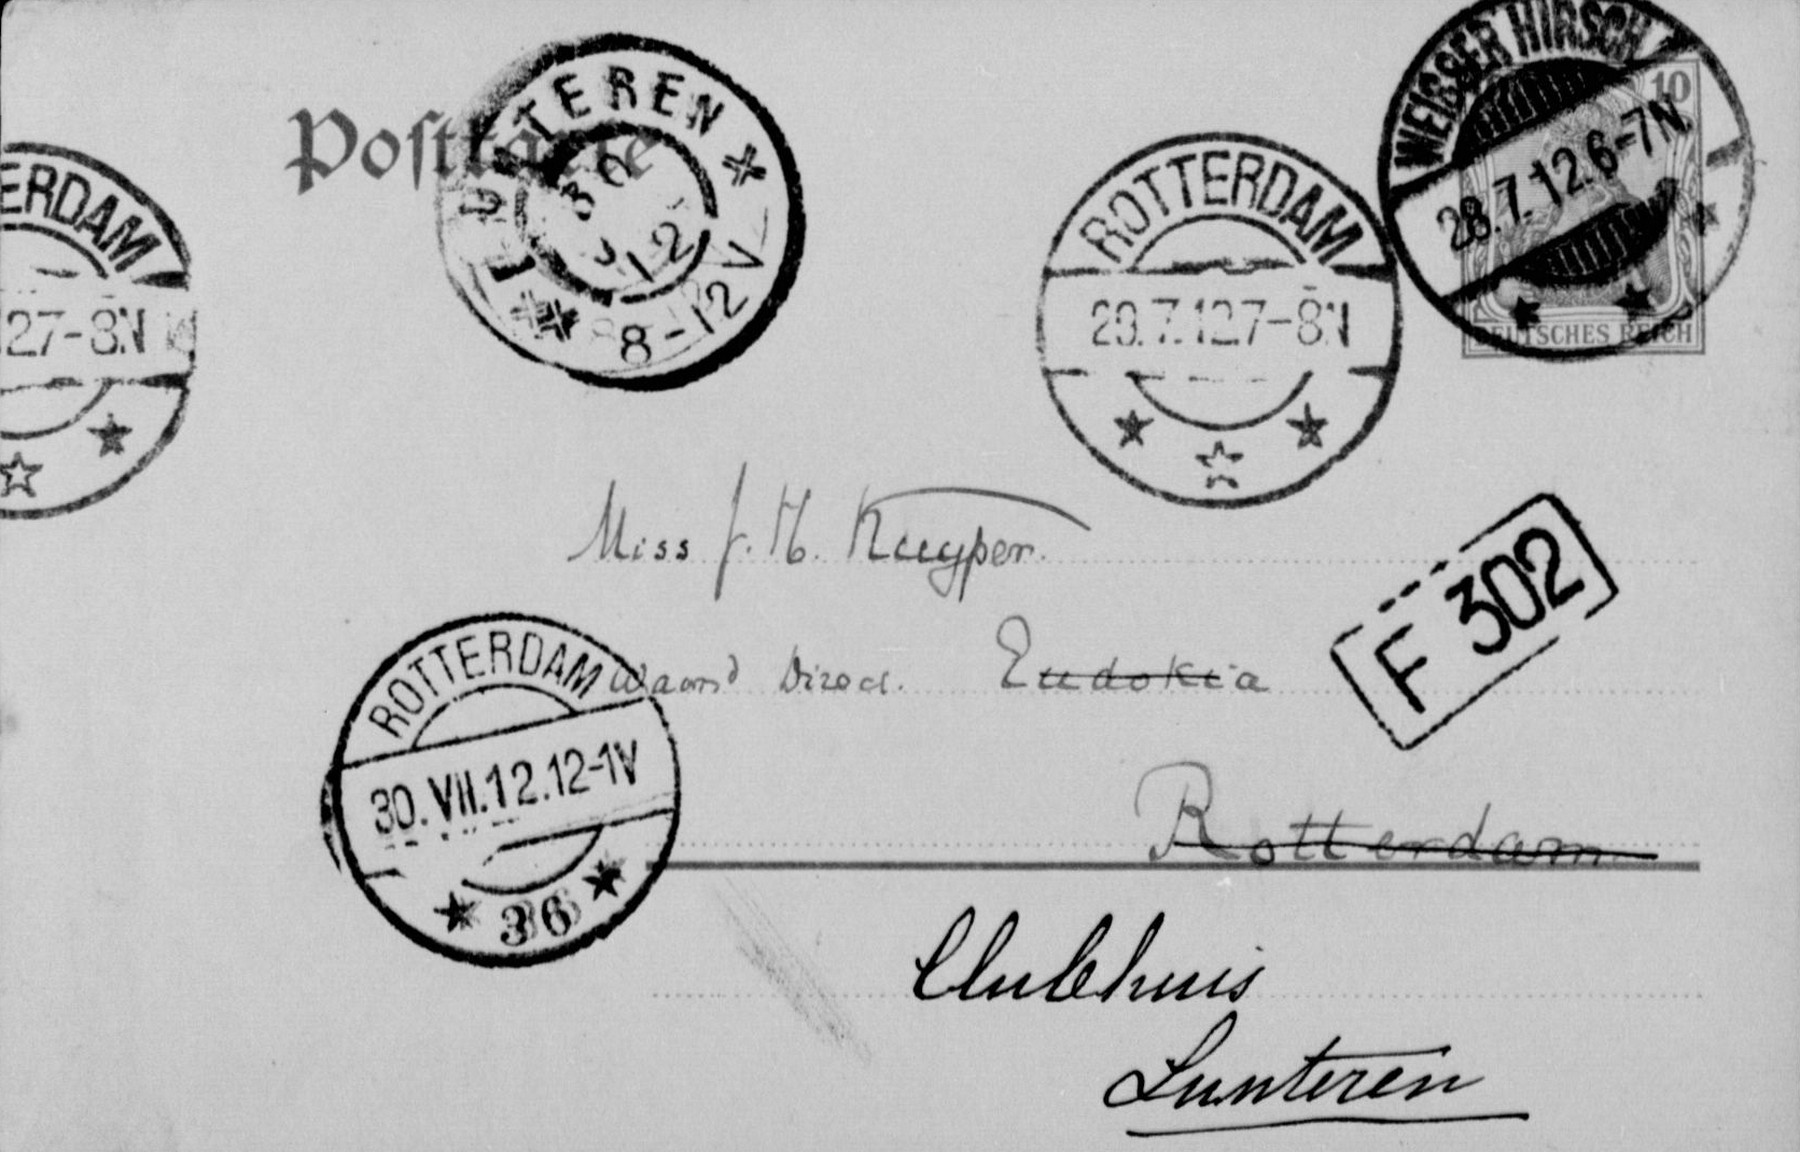 WEISSER HIRSCH
28.7.12.6-7N
10
DEUTSCHES REICH
Postkarte
LUNTEREN
30
12
8-12V
ROTTERDAM
29.7.12.7-8N
ERDAM
127-8N
Miss J. H. Kuyper.
F 302
Waarnd Direct. Eudokia
ROTTERDAM
30.VII.12.12-1V
36
Rotterdam
Clubhuis
Lunteren